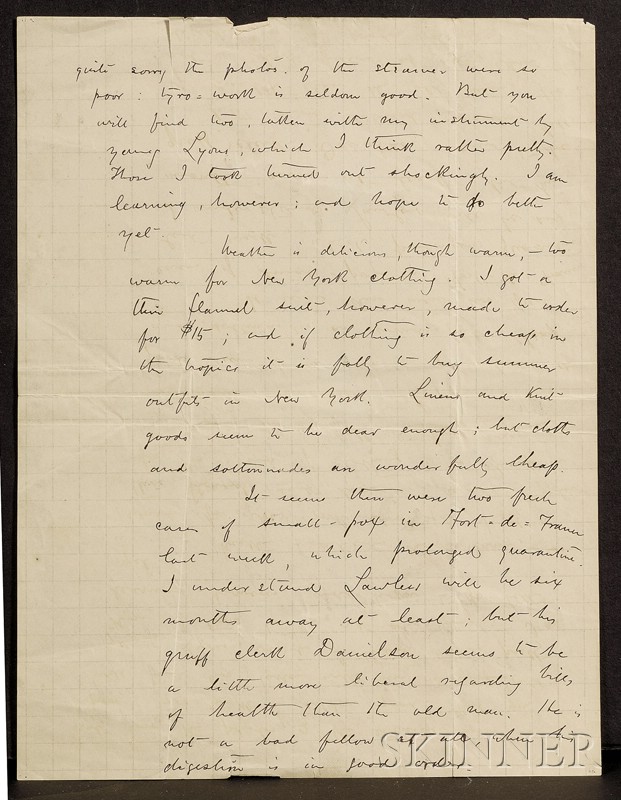 quite sorry the photos. of the steamer were so
poor: tyro=work is seldom good. But you
will find two, taken with my instrument by
young Lyons, which I think rather pretty.
Those I took turned out shockingly. I am
learning, however; and hope to do better
yet.
Weather is delicious, though warm,—too
warm for New York clothing. I got a
thin flannel suit, however, made to order
for $15; and if clothing is so cheap in
the tropics it is folly to buy summer
outfits in New York. Linens and Knit
goods seem to be dear enough; but cloths
and cottonnades are wonderfully cheap.
It seems there were two fresh
cases of small-pox in Fort=de=France
last week, which prolonged quarantine.
I understand Lawless will be six
months away at least; but his
gruff clerk Danielson seems to be
a little more liberal regarding bills
of health than the old man. He is
not a bad fellow at all, when his
digestion is in good order.
SKINNER